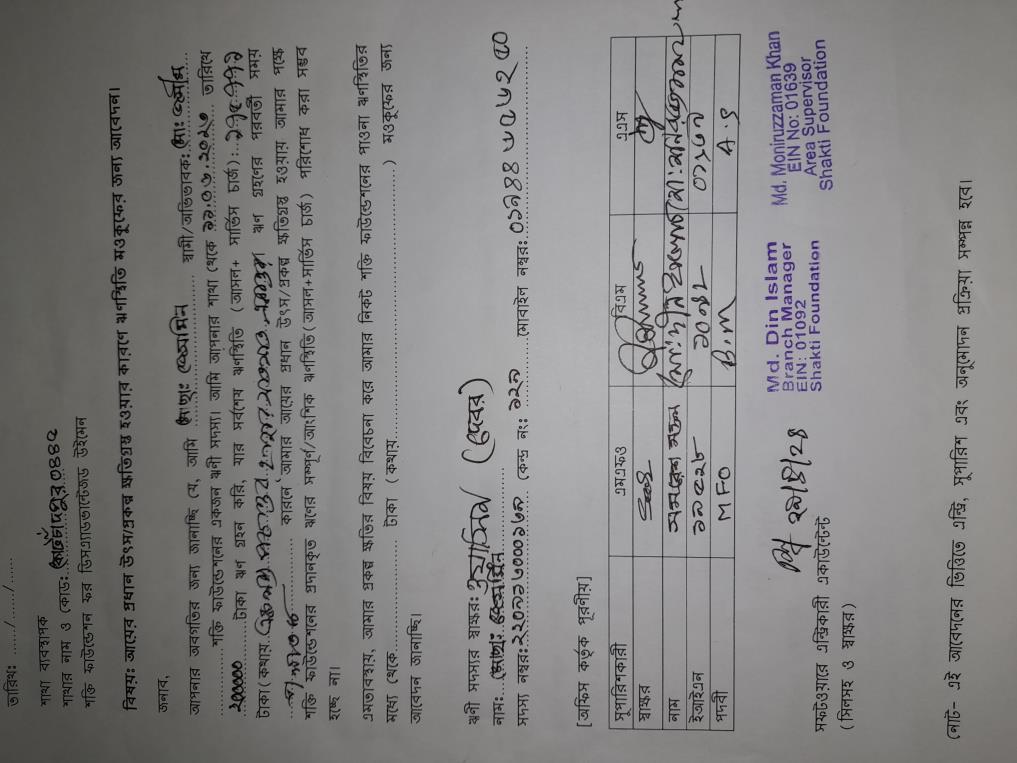 তারিখ: ....../....../......
শাখা ব্যবস্থাপক
শাখার নাম ও (কোড: কোটচাঁদপুর ০৪৪৫
শক্তি ফাউন্ডেশন ফর ডিসএ্যাডভান্টেজড উইমেন
বিষয়: আয়ের প্রধান উৎস/প্রকল্প ক্ষতিগ্রস্থ হওয়ার কারণে ঋণস্থিতি মওকুফের জন্য আবেদন।
জনাব,
আপনার অবগতির জন্য জানাচ্ছি যে, আমি মোছা: জেসমিন স্বামী/অভিভাবক: মো:
শক্তি ফাউন্ডেশনের একজন ঋণী সদস্য। আমি আপনার শাখা থেকে ২২.০৬.২০২৩ তারিখে
টাকা ঋণ গ্রহন করি, যার সর্বশেষ ঋণস্থিতি (আসল+ সার্ভিস চার্জ):
টাকা (কথায় ঋণ গ্রহণের পরবর্তী সময়
কারনে আমার আয়ের প্রধান উৎস/প্রকল্প ক্ষতিগ্রস্থ হওয়ায় আমার পক্ষে
শক্তি ফাউন্ডেশনের প্রদানকৃত ঋণের সম্পূর্ণ/আংশিক ঋণস্থিতি (আসল+সার্ভিস চার্জ) পরিশোধ করা সম্ভব
হচ্ছে না।
এমতাবস্থায়, আমার প্রকল্প ক্ষতির বিষয় বিবেচনা করে আমার নিকট শক্তি ফাউন্ডেশনের পাওনা ঋণস্থিতির
মধ্যে থেকে.................... টাকা (কথায়........................................) মওকুফের জন্য
আবেদন জানাচ্ছি।
ঋণী সদস্যর স্বাক্ষর: ইয়াসিন (দেবর)
নাম: মোছা: জেসমিন
সদস্য নম্বর: কেন্দ্র নং: ১২৯ মোবাইল নম্বর:
[অফিস কর্তৃক পূরণীয়]
সুপারিশকারী এমএফও বিএম এএস
স্বাক্ষর
নাম সমরেশ মন্ডল মো: দীন ইসলাম মো: মনিরুজ্জামান
ইআইএন ১০৯২ ০১৬৩৯
পদবী MFO B.M A.S
Md. Din Islam
Branch Manager
EIN: 01092
Shakti Foundation
Md. Moniruzzaman Khan
EIN No: 01639
Area Supervisor
Shakti Foundation
সফটওয়ারে এন্ট্রিকারী একাউন্টেন্ট
(সিলসহ ও স্বাক্ষর)
নোট- এই আবেদনের ভিত্তিতে এন্ট্রি, সুপারিশ এবং অনুমোদন প্রক্রিয়া সম্পন্ন হবে।